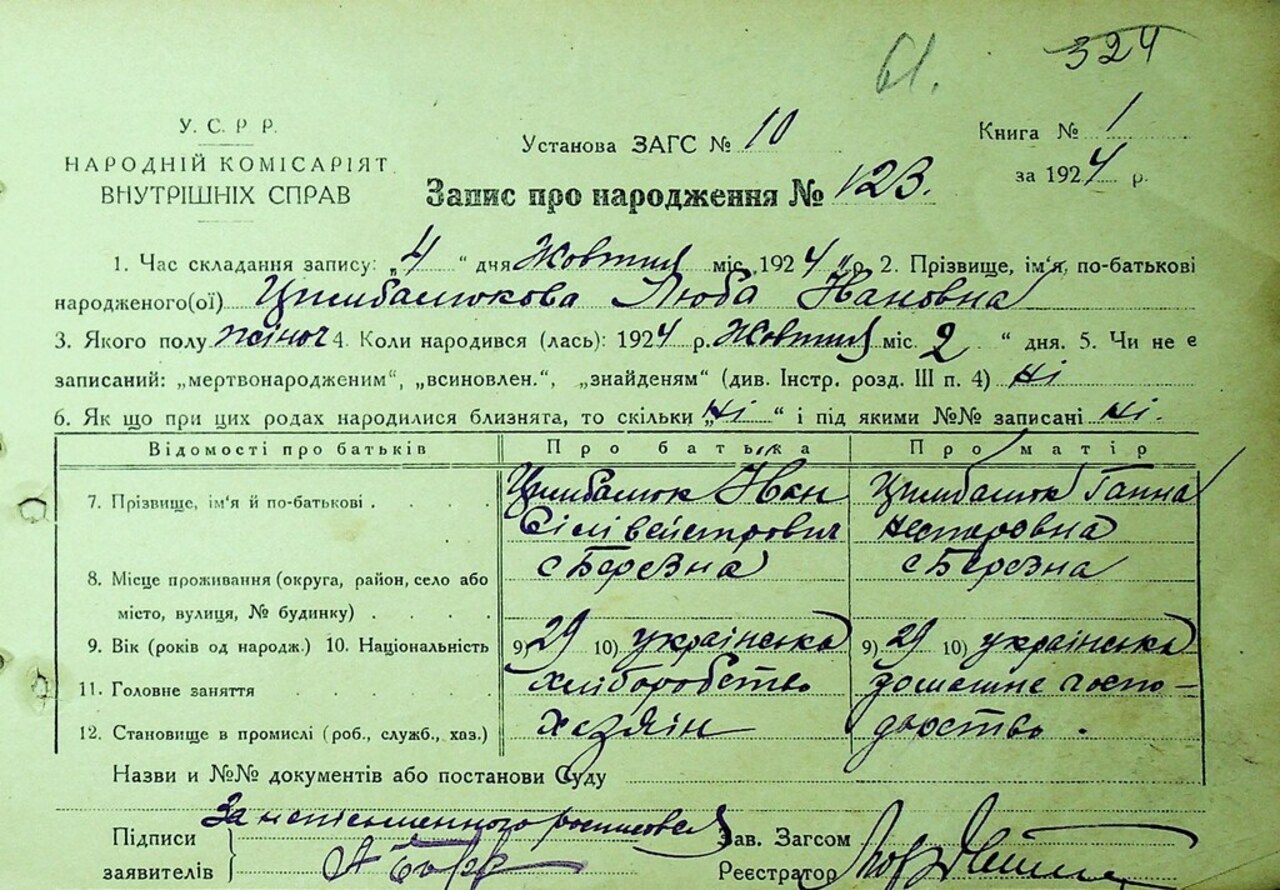 61. 324
У. С. Р Р.
НАРОДНІЙ КОМІСАРІЯТ
ВНУТРІШНІХ СПРАВ
Установа ЗАГС № 10
Книга № 1
за 1924 р.
Запис про народження № 123.
1. Час складання запису: „4“ дня Жовтня міс. 1924 р. 2. Прізвище, ім'я, по-батькові
народженого(ої) Цимбалюкова Люба Ивановна
3. Якого полу жіноч 4. Коли народився (лась): 1924 р. Жовтня міс. 2 “ дня. 5. Чи не є
записаний: „мертвонародженим“, „всиновлен.“, „знайденям“ (див. Інстр. розд. III п. 4) Ні
6. Як що при цих родах народилися близнята, то скільки „Ні“ і під якими №№ записані Ні.
Відомості про батьків Про батька Про матір
7. Прізвище, ім'я й по-батькові . . . . Цимбалюк Иван Цимбалюк Ганна
Сілівейстрович Несторовна
8. Місце проживання (округа, район, село або с Березна с Березна
місто, вулиця, № будинку) . . . .
9. Вік (років од народж.) 10. Національність 9) 29 10) українська 9) 29 10) українська
11. Головне заняття . . . . . хліборобство домашне госпо-
12. Становище в промислі (роб., служб., хаз.) хазяін дарство.
Назви и №№ документів або постанови Суду
Підписи За неписьменного росписовся Зав. Загсом
заявителів Реєстратор